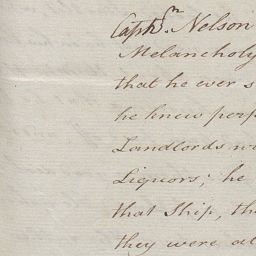 Captn. Nelson
Melancholy
that he ever s
he knew perf
Landlords wi
Liquors; he
that Ship, th
they were al